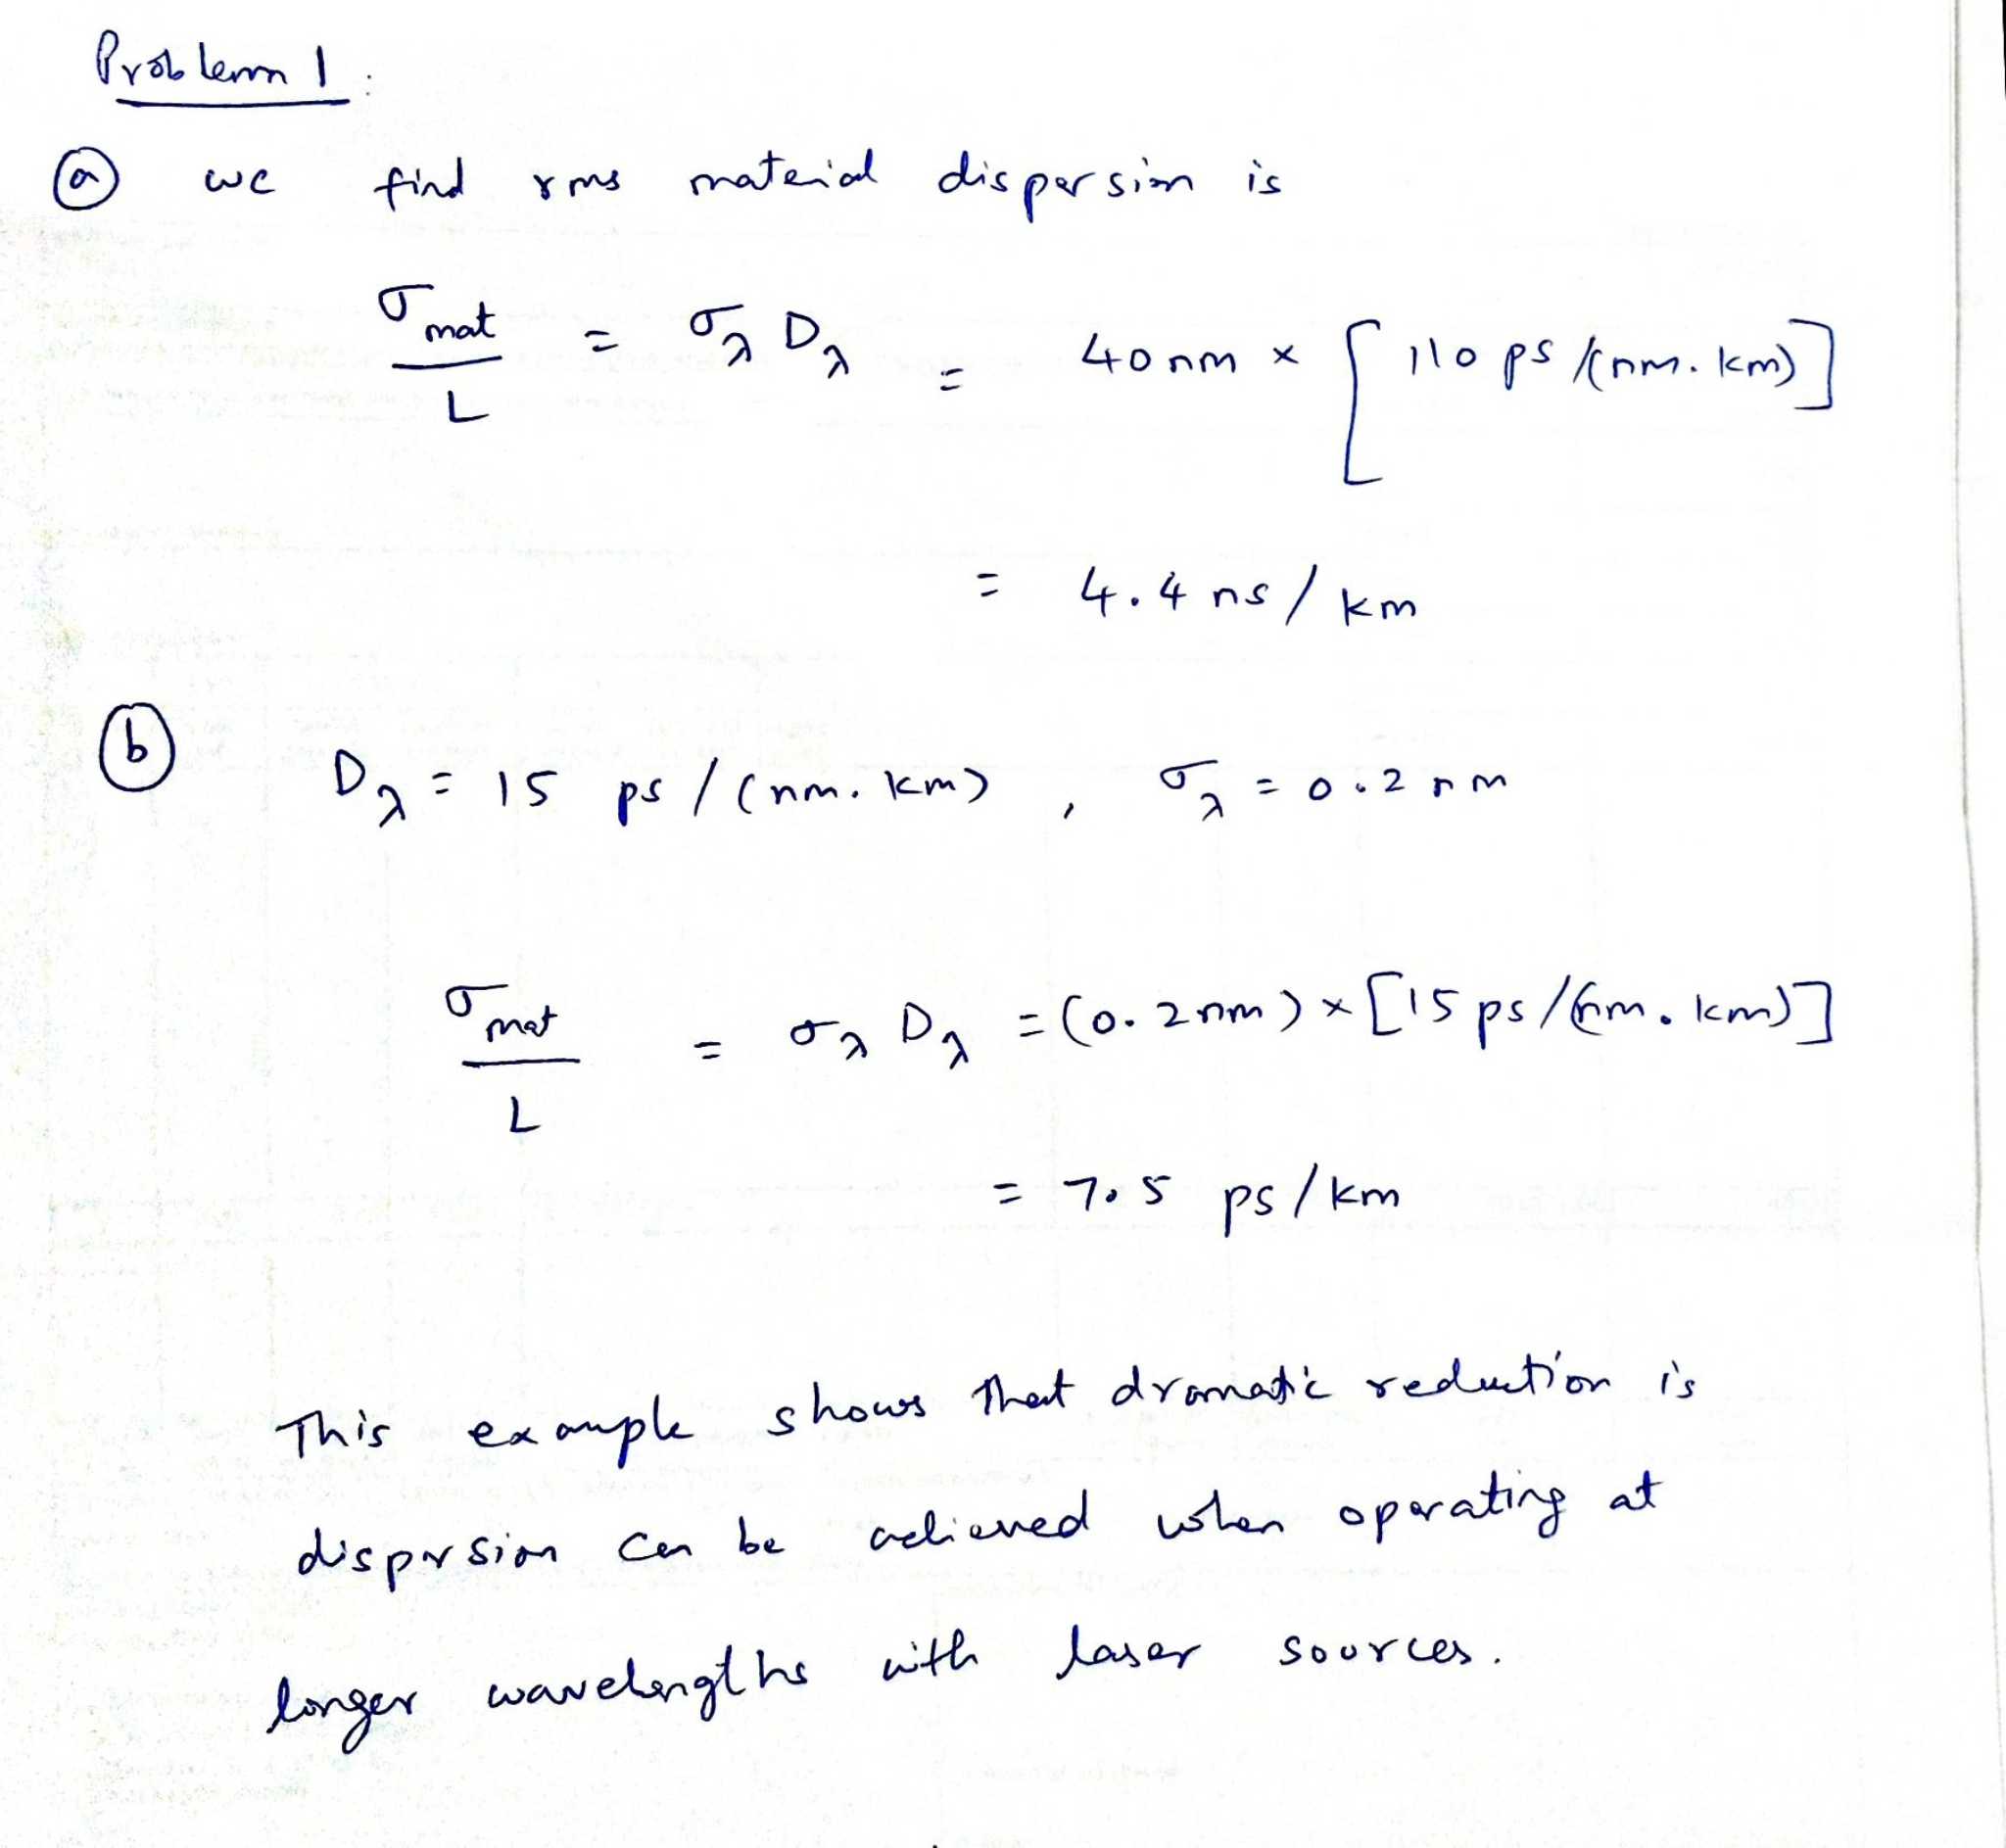 Problem 1:
(a) we find rms material dispersion is
σ_mat / L = σ_λ D_λ = 40 nm × [110 ps/(nm. km)]
= 4.4 ns / km
(b) D_λ = 15 ps / (nm. km) , σ_λ = 0.2 nm
σ_mat / L = σ_λ D_λ = (0.2 nm) × [15 ps/(nm. km)]
= 7.5 ps / km
This example shows that dramatic reduction is
dispersion can be achieved when operating at
longer wavelengths with laser sources.